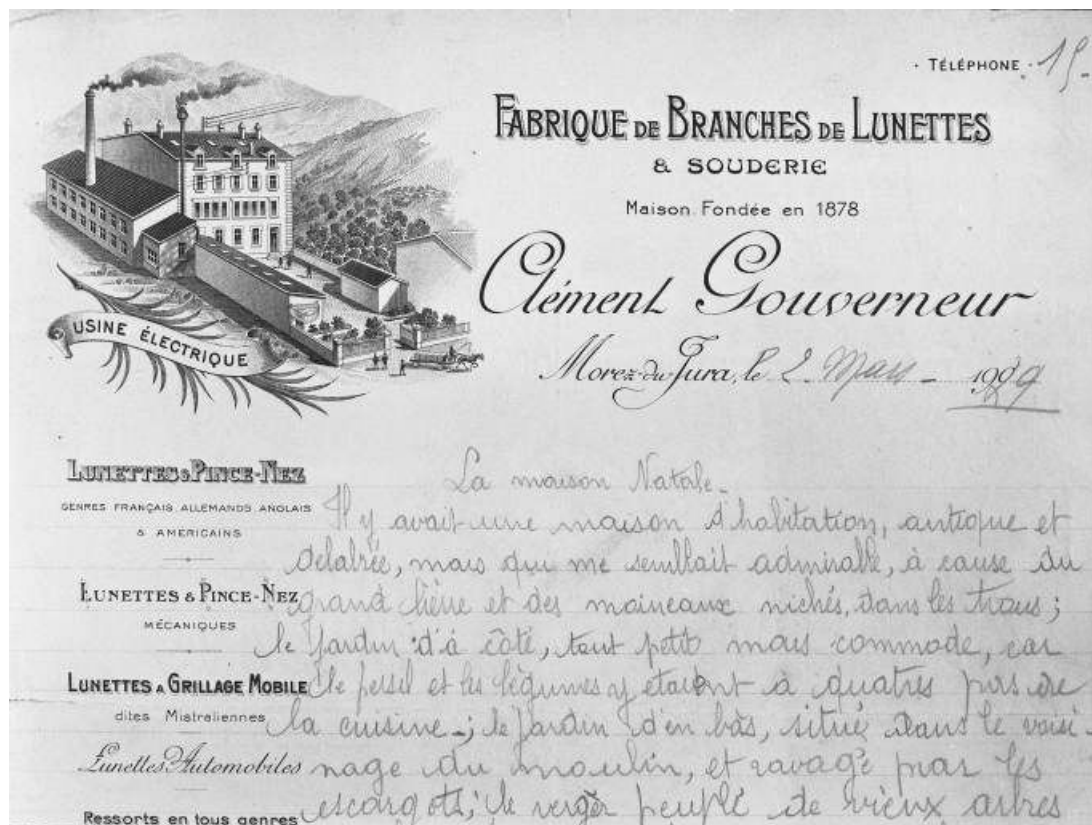 · TÉLÉPHONE · 15.
FABRIQUE DE BRANCHES DE LUNETTES
& SOUDERIE
Maison Fondée en 1878
Clément Gouverneur
Morez-du-Jura, le 2 Mars 1929
USINE ÉLECTRIQUE
LUNETTES & PINCE-NEZ
GENRES FRANÇAIS ALLEMANDS ANGLAIS
& AMERICAINS
LUNETTES & PINCE-NEZ
MÉCANIQUES
LUNETTES À GRILLAGE MOBILE
dites Mistraliennes
Lunettes Automobiles
Ressorts en tous genres
La maison Natale.
Il y avait une maison d'habitation, antique et
delabrée, mais qui me semblait admirable, à cause du
grand lière et des moineaux nichés, dans les trous ;
le jardin d'à côté, tout petit mais commode, car
le persil et les légumes y etaient à quatres pas de
la cuisine ; le jardin d'en bas, situé dans le voisi-
nage du moulin, et ravagé par les
escargots ; le verger peuplé de vieux arbres